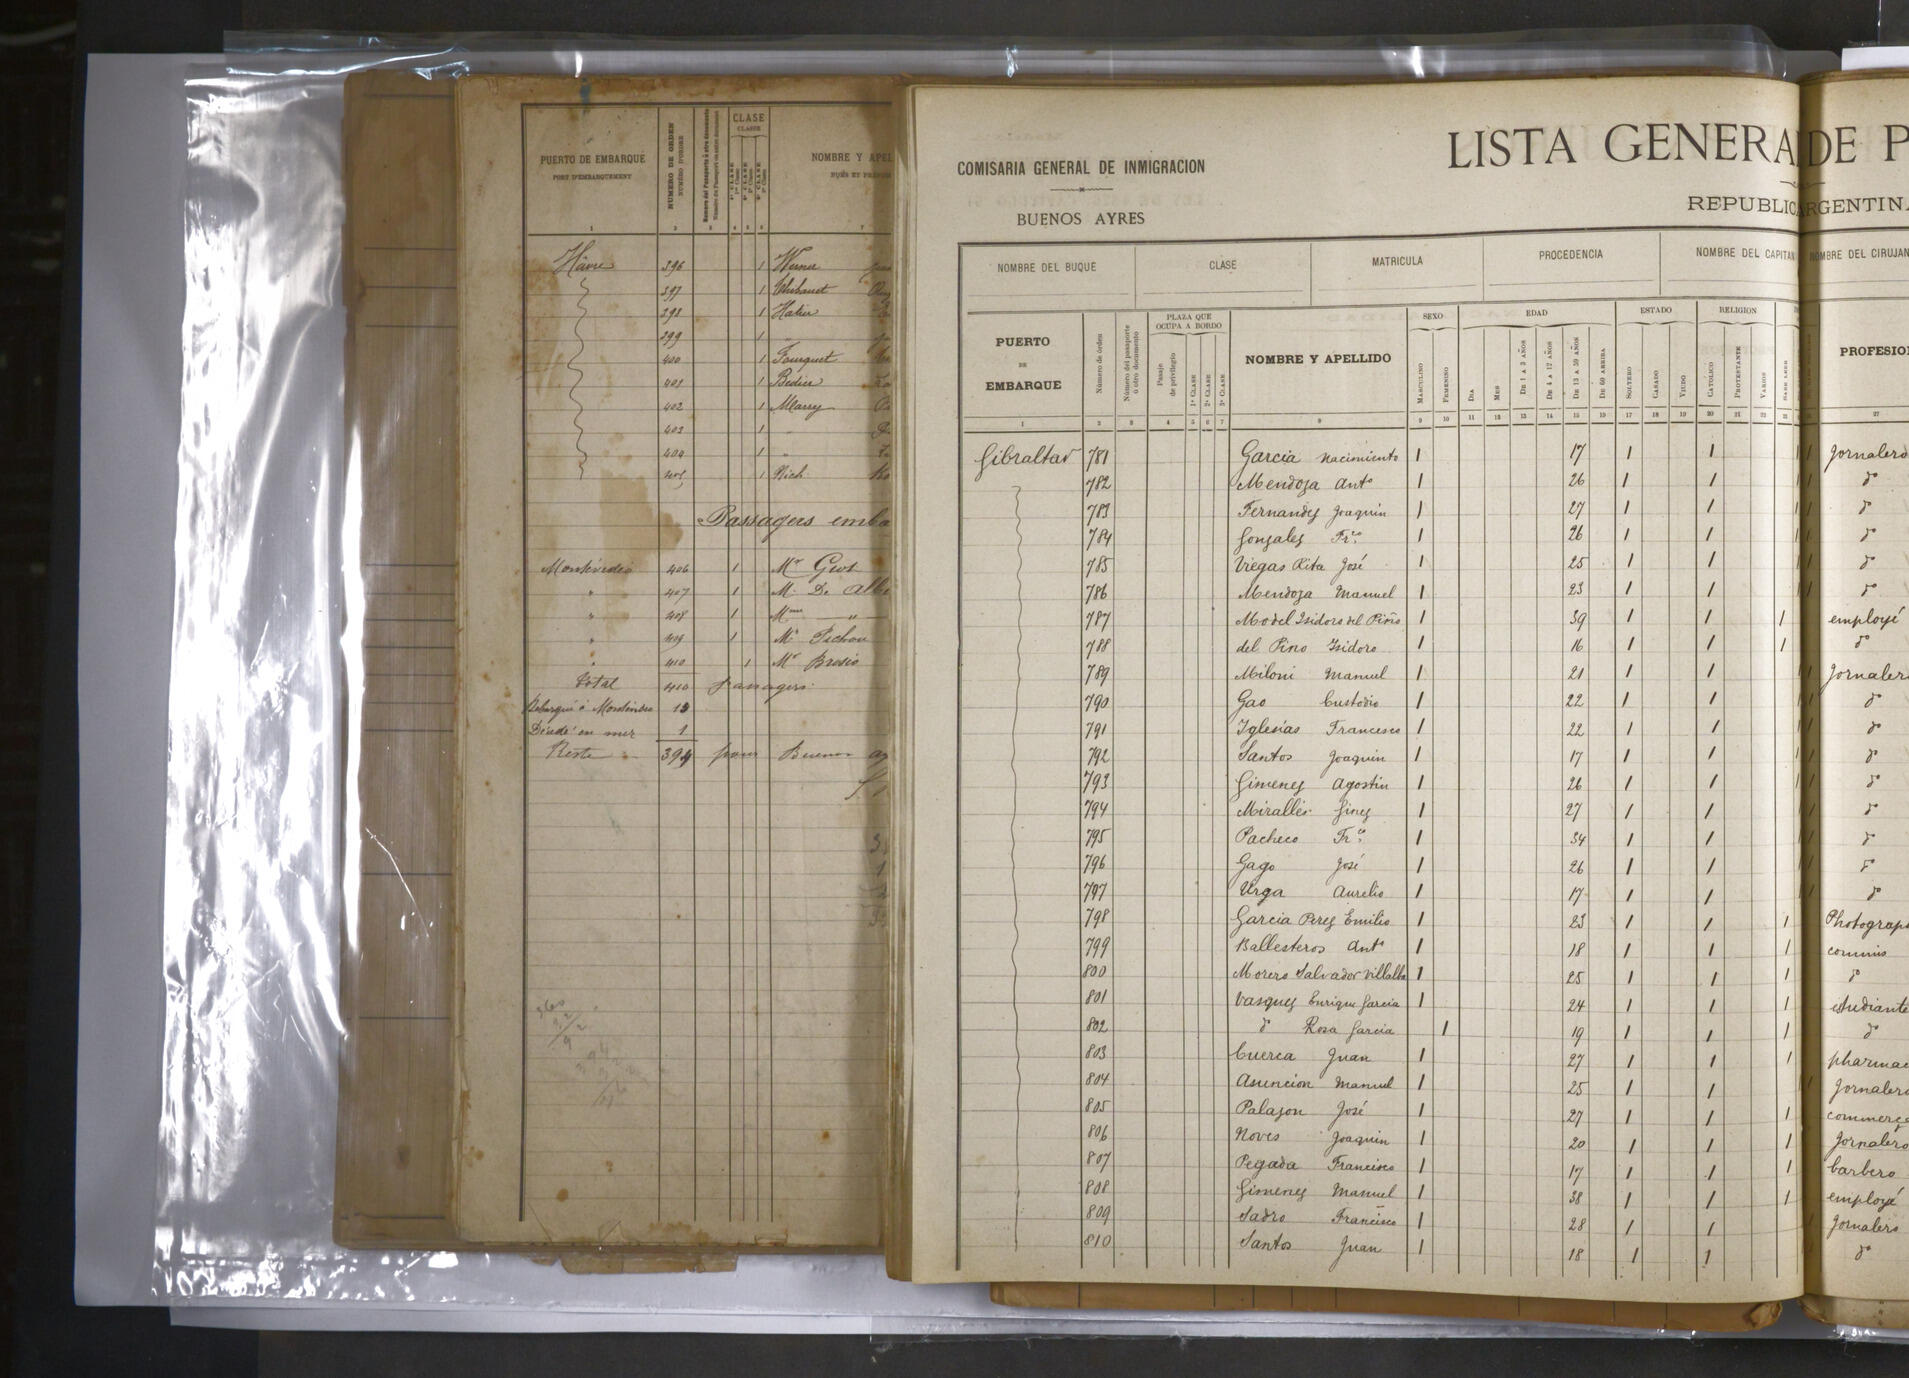 PUERTO DE EMBARQUE
PORT D'EMBARQUEMENT
NUMERO DE ORDEN
NUMÉRO D'ORDRE
CLASE
CLASSE
1ª CLASE
2ª CLASE
3ª CLASE
NOMBRE Y APEL
1 2 3 4 5 6 7
Hâvre 396 1 Werner
397 1 Thibaut
398 1 Hatier
399 1 "
400 1 Fourquet
401 1 Bedier
402 1 Marry
403 1 "
404 1 "
405 1 Nich
Passagers emba
Montévidéo 406 1 Mr Gros
" 407 1 M. De Albe
" 408 1 Mme "
" 409 1 Mr Pichon
" 410 1 Mr Brosio
Total 410 passagers
Debarqué à Montevideo 15
Décédé en mer 1
Reste 394 pour Buenos ay
COMISARIA GENERAL DE INMIGRACION
BUENOS AYRES
LISTA GENERA DE P
REPUBLIC ARGENTINA
NOMBRE DEL BUQUE CLASE MATRICULA PROCEDENCIA NOMBRE DEL CAPITAN NOMBRE DEL CIRUJAN
PUERTO
DE
EMBARQUE
Número de órden
Número del pasaporte
ó otro documento
PLAZA QUE
OCUPA A BORDO
Pasaje
de privilegio
1ª CLASE
2ª CLASE
3ª CLASE
NOMBRE Y APELLIDO
SEXO
MASCULINO
FEMENINO
EDAD
DIA
MES
DE 1 A 3 AÑOS
DE 4 A 12 AÑOS
DE 13 A 59 AÑOS
DE 60 ARRIBA
ESTADO
SOLTERO
CASADO
VIUDO
RELIGION
CATOLICO
PROTESTANTE
VARIOS
SABE LEER
PROFESIO
1 2 3 4 5 6 7 8 9 10 11 12 13 14 15 16 17 18 19 20 21 22 27
Gibraltar 781 Garcia Nacimiento 1 17 1 1 Jornalero
782 Mendoza Anto 1 26 1 1 do
783 Fernandez Joaquin 1 27 1 1 do
784 Gonzalez Frco 1 26 1 1 do
785 Viegas Rita José 1 25 1 1 do
786 Mendoza Manuel 1 23 1 1 do
787 Model Isidoro del Pino 1 39 1 1 1 employé
788 del Pino Isidoro 1 16 1 1 1 do
789 Miloni Manuel 1 21 1 1 Jornaler
790 Gao Custodio 1 22 1 1 do
791 Iglesias Francesco 1 22 1 1 do
792 Santos Joaquin 1 17 1 1 do
793 Gimenez Agostin 1 26 1 1 do
794 Miralles Ginez 1 27 1 1 do
795 Pacheco Frco 1 34 1 1 do
796 Gago José 1 26 1 1 do
797 Urga Aurelio 1 17 1 1 do
798 Garcia Perez Emilio 1 23 1 1 1 Photograph
799 Ballesteros Anto 1 18 1 1 1 commis
800 Morero Salvador Villalba 1 25 1 1 1 do
801 Vasquez Enrique Garcia 1 24 1 1 1 estudiante
802 do Rosa Garcia 1 19 1 1 1 do
803 Cuerca Juan 1 27 1 1 1 pharmac
804 Asuncion Manuel 1 25 1 1 Jornalero
805 Palazon José 1 27 1 1 1 commerç
806 Noves Joaquin 1 20 1 1 1 Jornalero
807 Pegada Francisco 1 17 1 1 1 barbero
808 Gimenez Manuel 1 38 1 1 1 employé
809 Sadro Francisco 1 28 1 1 Jornalero
810 Santos Juan 1 18 1 1 do